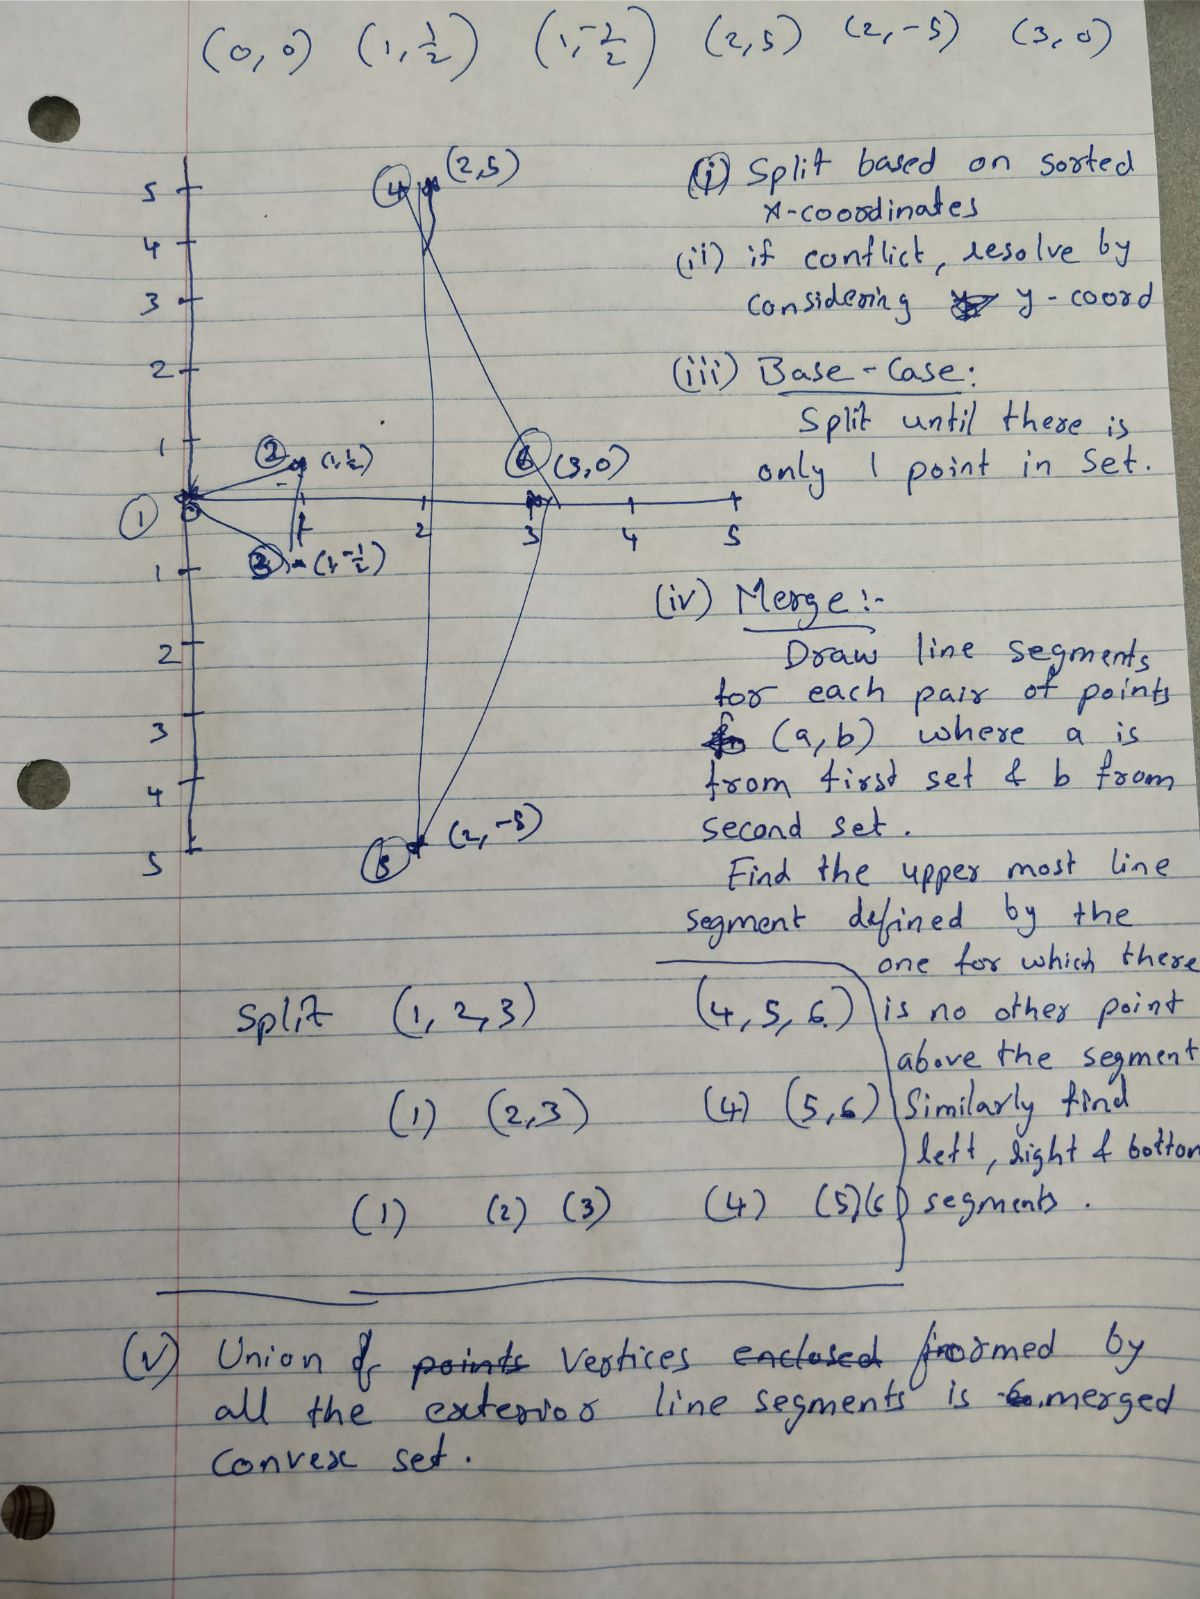 (0, 0) (1, 1/2) (1, -1/2) (2, 5) (2, -5) (3, 0)
5
4
3
2
1
1
2
3
4
5
0
1
2
3
4
5
4 (2,5)
2 (1, 1/2)
6 (3,0)
1
3 (1, -1/2)
5 (2, -5)
(i) Split based on sorted
x-coordinates
(ii) if conflict, resolve by
considering y-coord
(iii) Base-Case:
Split until there is
only 1 point in set.
(iv) Merge:-
Draw line segments
for each pair of points
(a, b) where a is
from first set & b from
second set.
Find the upper most line
segment defined by the
one for which there
is no other point
above the segment
Similarly find
left, right & bottom
segments.
Split (1, 2, 3) (4, 5, 6)
(1) (2, 3) (4) (5, 6)
(1) (2) (3) (4) (5) (6)
(v) Union of points vertices enclosed formed by
all the exterior line segments is merged
convex set.